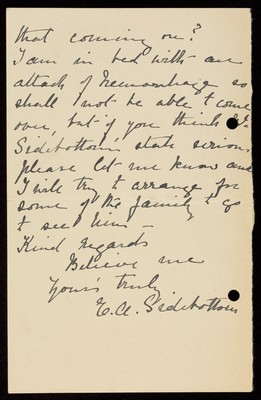 that coming on?
I am in bed with an
attack of hemorrhage so
shall not be able to come
over, but if you think
Sidebottom's state serious
please let me know and
I will try to arrange for
some of the family to go
to see him –
Kind regards
Believe me
Yours truly
E.A. Sidebottom